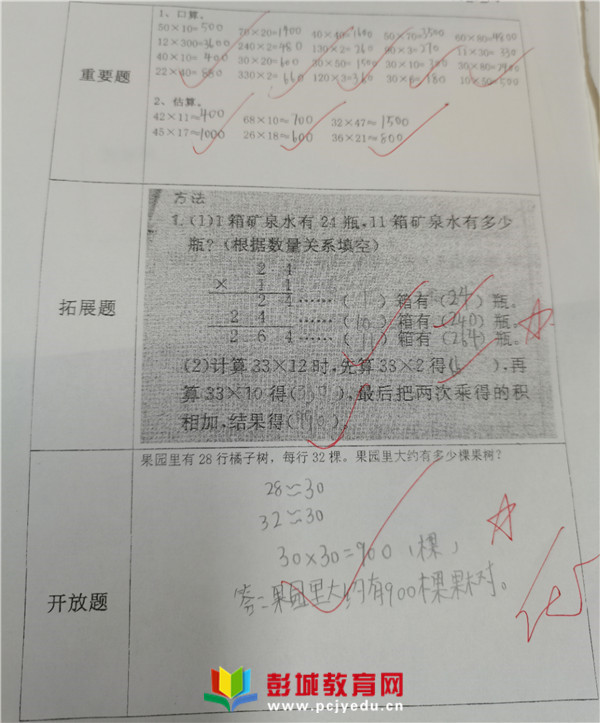 1、口算。
50×10=500 70×20=1900 40×40=1600 50×70=3500 60×80=4800
12×300=3600 240×2=480 130×2=260 90×3=270 11×30=330
40×10=400 30×20=600 30×50=1500 30×10=300 30×80=2400
22×40=880 330×2=660 120×3=360 30×6=180 10×50=500
重要题
2、估算。
42×11≈400 68×10≈700 32×47≈1500
45×17≈1000 26×18≈600 36×21≈800
方法
1.(1)1箱矿泉水有24瓶,11箱矿泉水有多少
瓶?(根据数量关系填空)
2 4
× 1 1
2 4 ……(1)箱有(24)瓶。
2 4 ……(10)箱有(240)瓶。
2 6 4 ……(11)箱有(264)瓶。
拓展题
(2)计算33×12时,先算33×2得( ),再
算33×10得( ),最后把两次乘得的积
相加,结果得( )。
果园里有28行橘子树,每行32棵。果园里大约有多少棵果树?
28≈30
32≈30
30×30=900(棵)
答:果园里大约有900棵果树。
开放题
彭城教育网
www.pcjyedu.cn